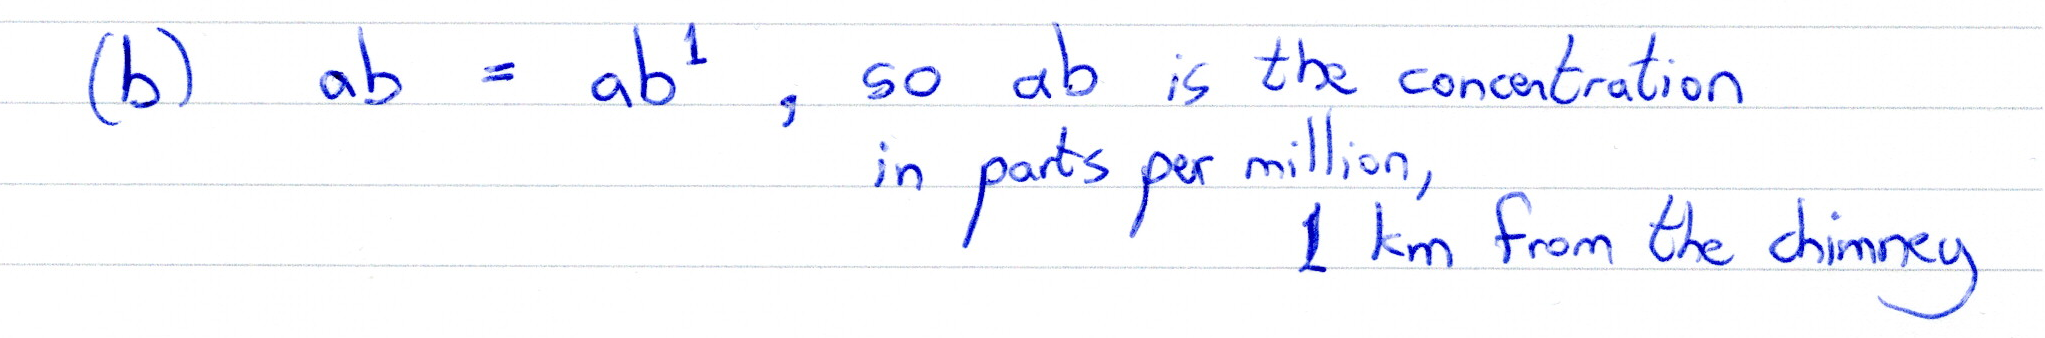 (b) ab = ab¹, so ab is the concentration
in parts per million,
1 km from the chimney